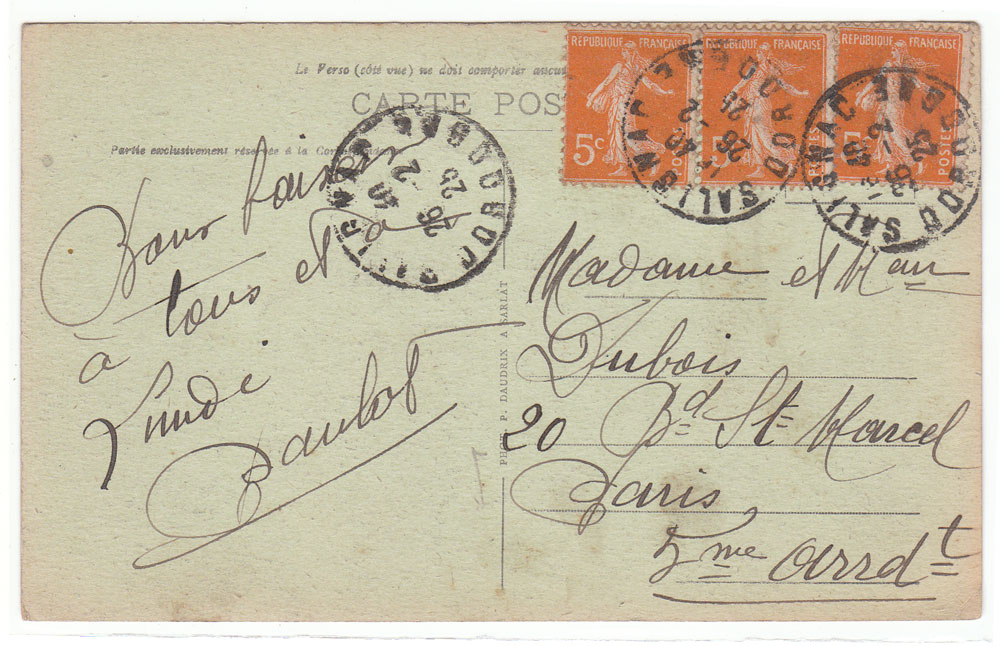 Le Verso (côté vue) ne doit comporter aucu
CARTE POS
Partie exclusivement réservée à la Cor
REPUBLIQUE FRANÇAISE
5c POSTES
REPUBLIQUE FRANÇAISE
5c
REPUBLIQUE FRANÇAISE
5c POSTES
SALIGNAC DORDOGNE
26 -2 25
SALIGNAC DORDOGNE
26 -2 25
SALIGNAC DORDOGNE
26 -2 25
Bons baisers
à tous et à
Lundi
Paulot
PHOT. P. DAUDRIX A SARLAT
Madame et Mon
Dubois
20 Bd St Marcel
Paris
5me Arrdt